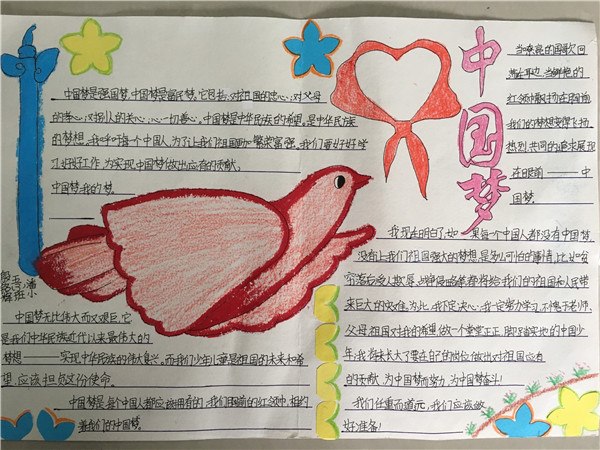 中国梦
中国梦是强国梦,中国梦是富民梦。它包括:对祖国的忠心;对父母
的孝心;对别人的关心;心一切善心。中国梦是中华民族的希望。是中华民族
的梦想。我呼吁每个中国人,为了让我们祖国更加繁荣富强,我们要好好学
习,好好工作,为实现中国梦做出应有的贡献。
中国梦,我的梦。
当嘹亮的国歌回
荡在耳边,当鲜艳的
红领巾飘扬在胸前
我们的梦想变得飞扬
热烈,共同的追求展现
在眼前——中
国梦。
我现在明白了,如果每个中国人都没有中国梦,
没有让我们祖国强大的梦想,是多么可怕的事情,比如贫
穷落后受人欺凌、
来巨大的灾难。为此,我下定决心:我一定努力学习,不愧于老师、
父母、祖国对我的希望,做一个堂堂正正、脚踏实地的中国少
年,我将来长大了要在自己的岗位做出对祖国应有
的贡献,为中国梦而努力,为中国梦奋斗!
我们任重而道远,我们应该做
好准备!
中国梦无比伟大而又艰巨,它
是我们中华民族近代以来最伟大的
梦想——实现中华民族的伟大复兴。而我们少年儿童是祖国的未来和希
望,应该担负这份使命。
中国梦是每个中国人都应该拥有的,我们胸前的红领巾,相约
着我们的中国梦。